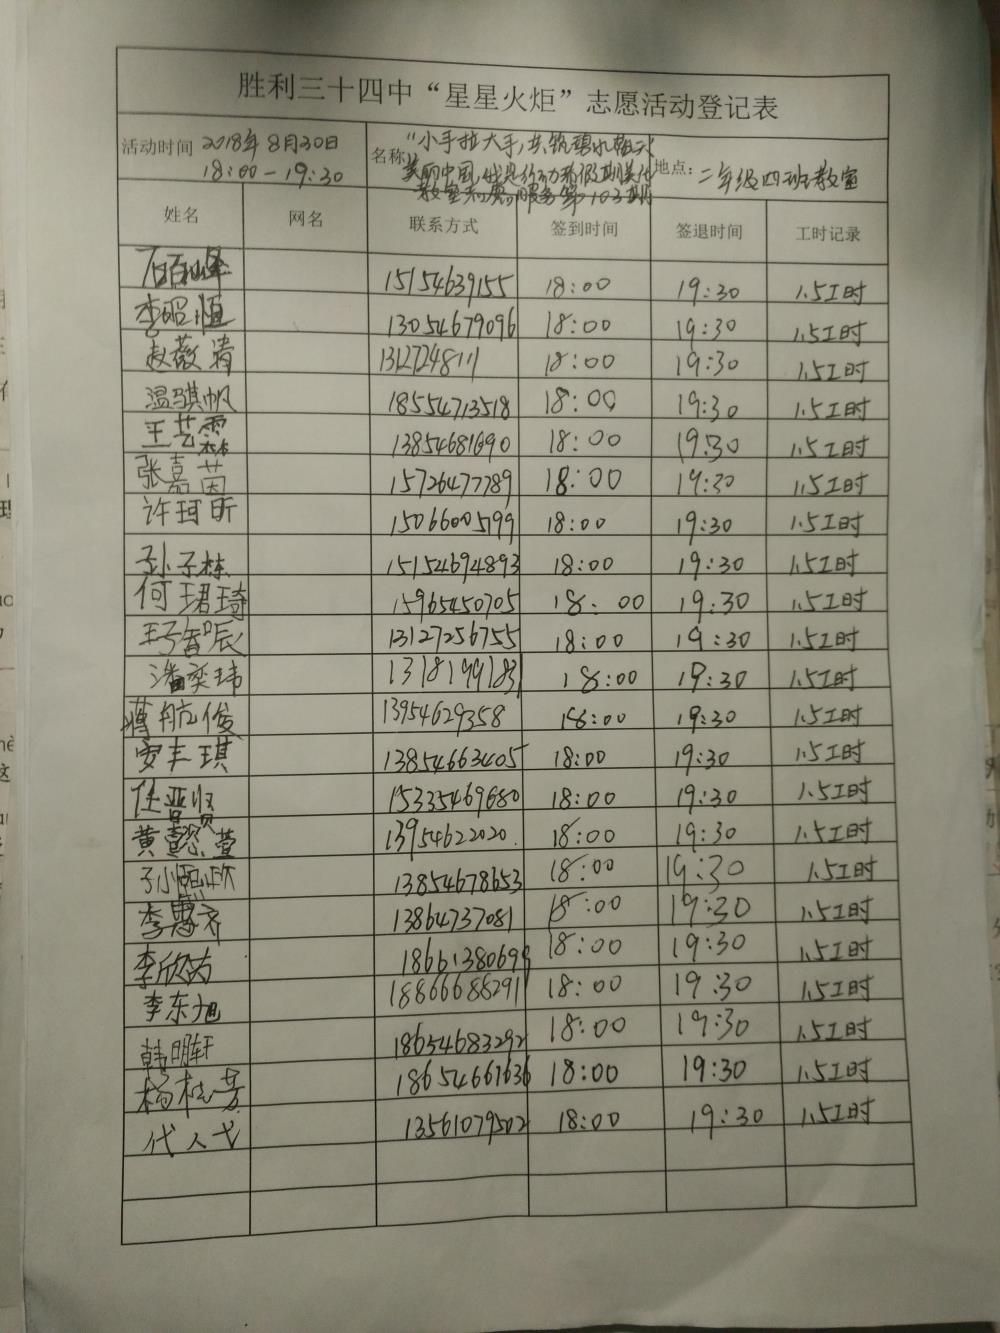 胜利三十四中“星星火炬”志愿活动登记表
活动时间 2018年8月30日 18:00-19:30 名称: “小手拉大手,共筑碧水蓝天 美丽中国,我是行动者假期美化教室志愿服务第103期 地点: 二年级四班教室
姓名 网名 联系方式 签到时间 签退时间 工时记录
15154639155 18:00 19:30 1.5工时
李昭恒 13054679096 18:00 19:30 1.5工时
赵薇清 1312724811 18:00 19:30 1.5工时
温骐帆 18554713518 18:00 19:30 1.5工时
王艺霖 13854681690 18:00 19:30 1.5工时
张嘉茵 15726477789 18:00 19:30 1.5工时
许珂昕 15066005199 18:00 19:30 1.5工时
孙子栋 15154694893 18:00 19:30 1.5工时
何珺琦 15965450705 18:00 19:30 1.5工时
13127256755 18:00 19:30 1.5工时
潘奕玮 13181991831 18:00 19:30 1.5工时
蒋航俊 13954629358 18:00 19:30 1.5工时
安丰琪 13854663405 18:00 19:30 1.5工时
任晋贤 15335469680 18:00 19:30 1.5工时
黄懿萱 13954622020 18:00 19:30 1.5工时
孙熙欣 13854678653 18:00 19:30 1.5工时
李惠齐 13864737081 18:00 19:30 1.5工时
李欣芮 18661380699 18:00 19:30 1.5工时
李东旭 18866688291 18:00 19:30 1.5工时
韩明轩 18654683292 18:00 19:30 1.5工时
杨桂芳 18654661636 18:00 19:30 1.5工时
代人戈 13561079502 18:00 19:30 1.5工时